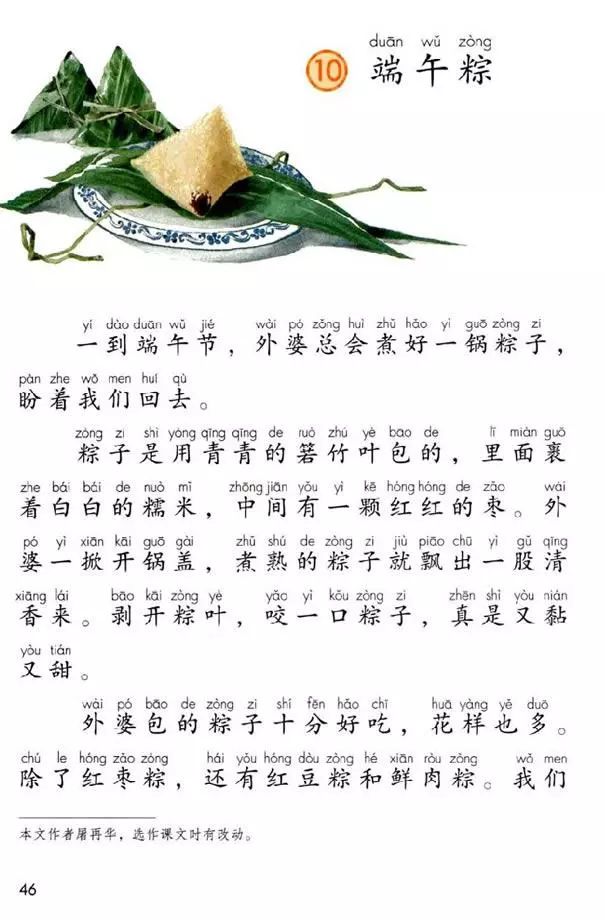 duān wǔ zòng
10 端午粽
yí dào duān wǔ jié wài pó zǒng huì zhǔ hǎo yì guō zòng zi
一到端午节，外婆总会煮好一锅粽子，
pàn zhe wǒ men huí qù
盼着我们回去。
zòng zi shì yòng qīng qīng de ruò zhú yè bāo de lǐ miàn guǒ
粽子是用青青的箬竹叶包的，里面裹
zhe bái bái de nuò mǐ zhōng jiān yǒu yì kē hóng hóng de zǎo wài
着白白的糯米，中间有一颗红红的枣。外
pó yì xiān kāi guō gài zhǔ shú de zòng zi jiù piāo chū yì gǔ qīng
婆一掀开锅盖，煮熟的粽子就飘出一股清
xiāng lái bāo kāi zòng yè yǎo yì kǒu zòng zi zhēn shì yòu nián
香来。剥开粽叶，咬一口粽子，真是又黏
yòu tián
又甜。
wài pó bāo de zòng zi shí fēn hǎo chī huā yàng yě duō
外婆包的粽子十分好吃，花样也多。
chú le hóng zǎo zòng hái yǒu hóng dòu zòng hé xiān ròu zòng wǒ men
除了红枣粽，还有红豆粽和鲜肉粽。我们
本文作者屠再华，选作课文时有改动。
46